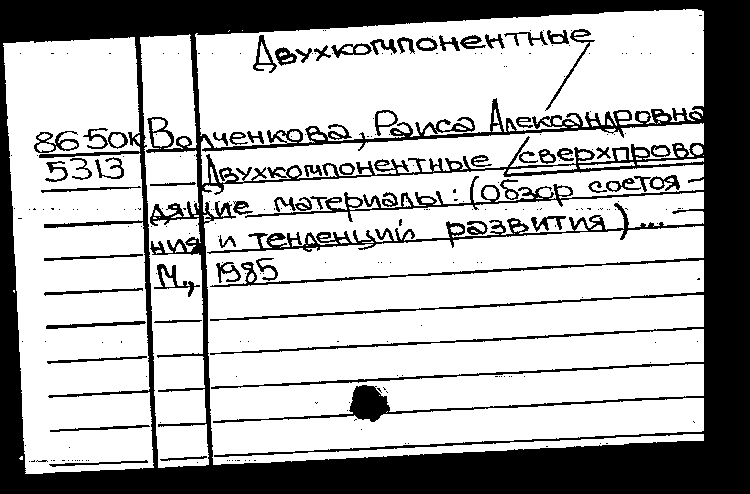 Двухкомпонентные
8650к Волченкова, Раиса Александровна
5313 Двухкомпонентные сверхпрово
дящие материалы: (Обзор состоя-
ния и тенденций развития)... -
М., 1985